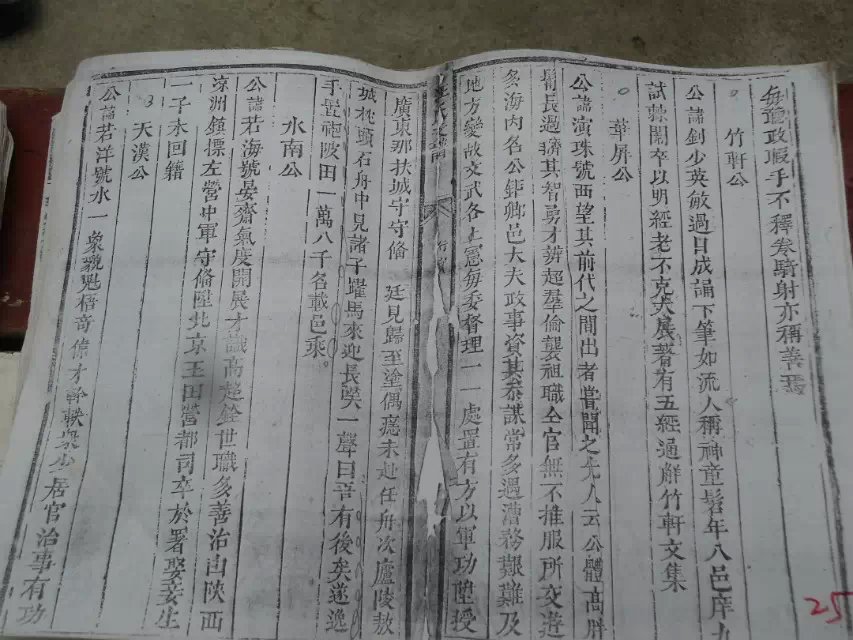 每豫政暇手不釋卷騎射亦稱善焉
竹軒公
公諱釗少英敏過目成誦下筆如流人稱神童髫年入邑庠九
試棘闈卒以明經老不克大展著有五經通解竹軒文集
華屏公
公諱演珠號西望其前代之間出者嘗聞之先人云公體高胖
鬚長過臍其智勇才辨超羣倫襲祖職仝官無不推服所交遊
多海内名公鉅卿邑大夫政事資其叅謀常多遇漕務艱難及
地方變故文武各上憲每委督理一一處置有方以軍功陞授
廣東那扶城守守俻 廷見歸至塗偶瘾未赴任舟次廬陵敖
城桃頭石舟中見諸子躍馬來迎長笑一聲曰吾有後矣遂逸
手置袍陂田一萬八千名載邑乘
水南公
公諱若海號晏齋氣度開展才識高超銓世職多善治由陝西
凉洲鎮標左營中軍守俻陞北京玉田營都司卒於署娶妾生
一子未回籍
天漢公
公諱若洋號水一衆親魁梧奇偉才幹軼衆少居官治事有功
25